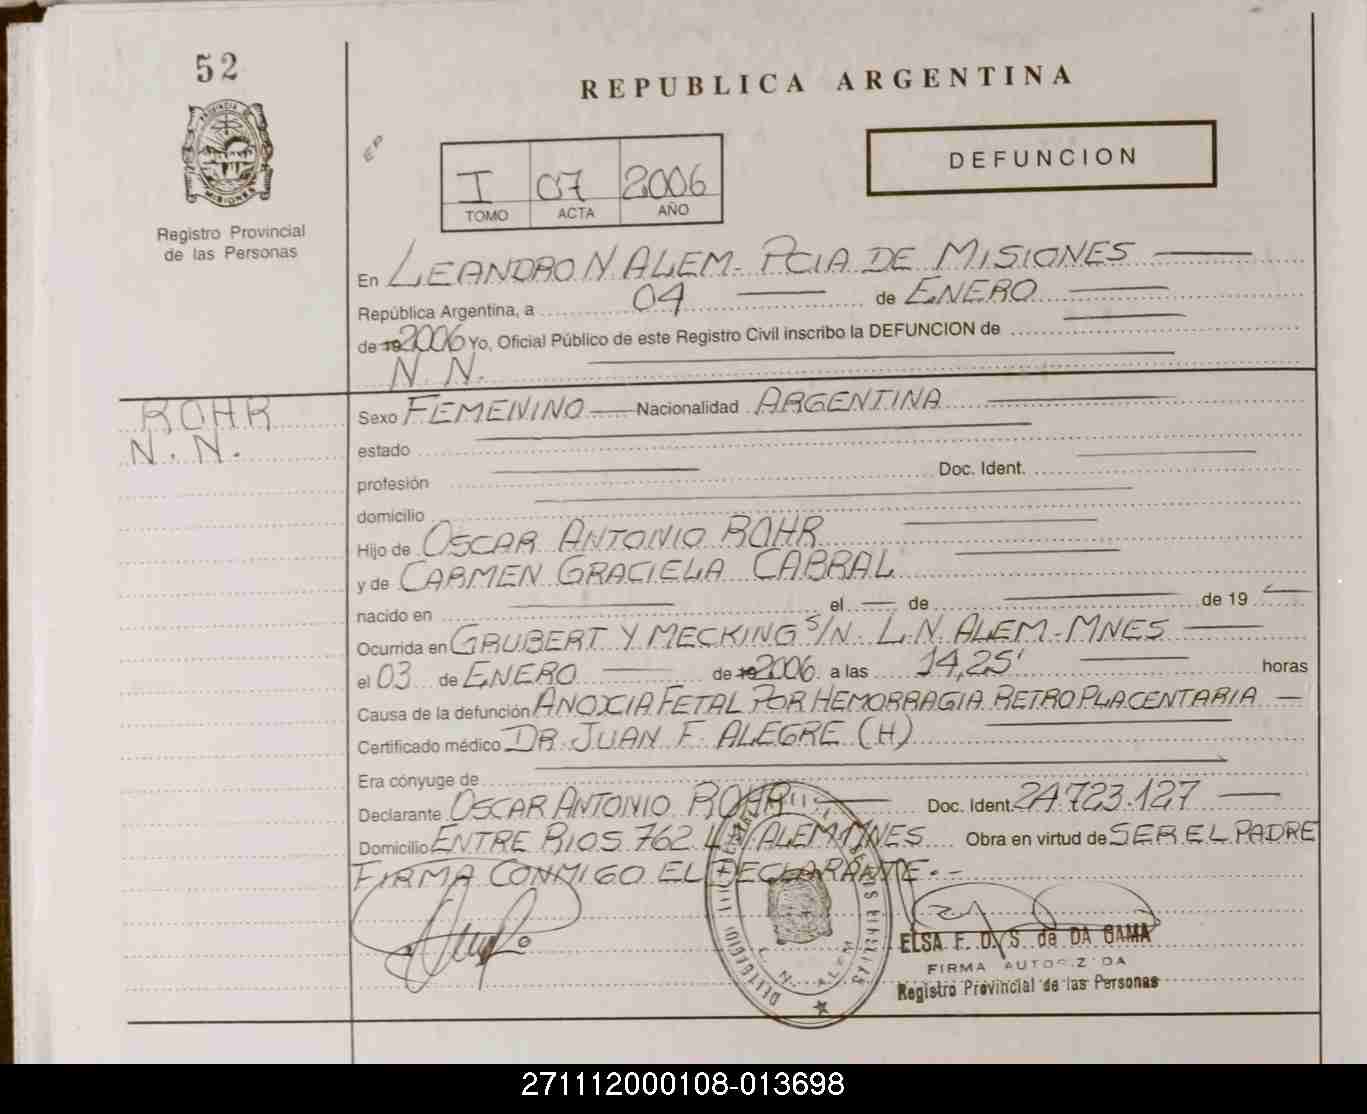 52
REPUBLICA ARGENTINA
DEFUNCION
I 07 2006
TOMO ACTA AÑO
Registro Provincial
de las Personas
En LEANDRO N ALEM - PCIA DE MISIONES
República Argentina, a 04 de ENERO
de 19 2006 Yo, Oficial Público de este Registro Civil inscribo la DEFUNCION de
N. N.
ROHR
N. N.
Sexo FEMENINO Nacionalidad ARGENTINA
estado
profesión Doc. Ident.
domicilio
Hijo de OSCAR ANTONIO ROHR
y de CARMEN GRACIELA CABRAL
nacido en el de de 19
Ocurrida en GRUBERT Y MECKING S/N. L.N. ALEM - MNES
el 03 de ENERO de 19 2006 a las 14,25' horas
Causa de la defunción ANOXIA FETAL POR HEMORRAGIA RETROPLACENTARIA
Certificado médico DR. JUAN F. ALEGRE (H)
Era cónyuge de
Declarante OSCAR ANTONIO ROHR Doc. Ident. 24.723.127
Domicilio ENTRE RIOS 762 ALEM MNES Obra en virtud de SER EL PADRE
FIRMA CONMIGO EL DECLARANTE.-
L. N. ALEM
ELSA F. D. S. de DA GAMA
FIRMA AUTORIZADA
Registro Provincial de las Personas
271112000108-013698